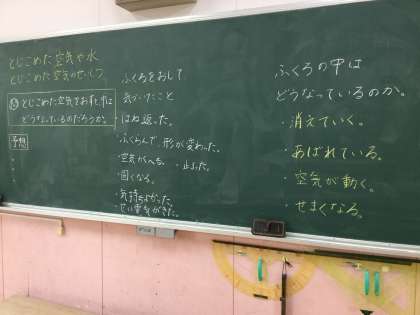 とじこめた空気や水
とじこめた空気のせいしつ
とじこめた空気をおすと、中は
どうなっているのだろうか。
予想
ふくろをおして
気づいたこと
・はね返った。
・ふくらんで、形が変わった。
・空気がへる。・止まった。
・固くなる。
・気持ちよかった。
・せい電気がきた。
ふくろの中は
どうなっているのか。
・消えていく。
・あばれている。
・空気が動く。
・せまくなる。